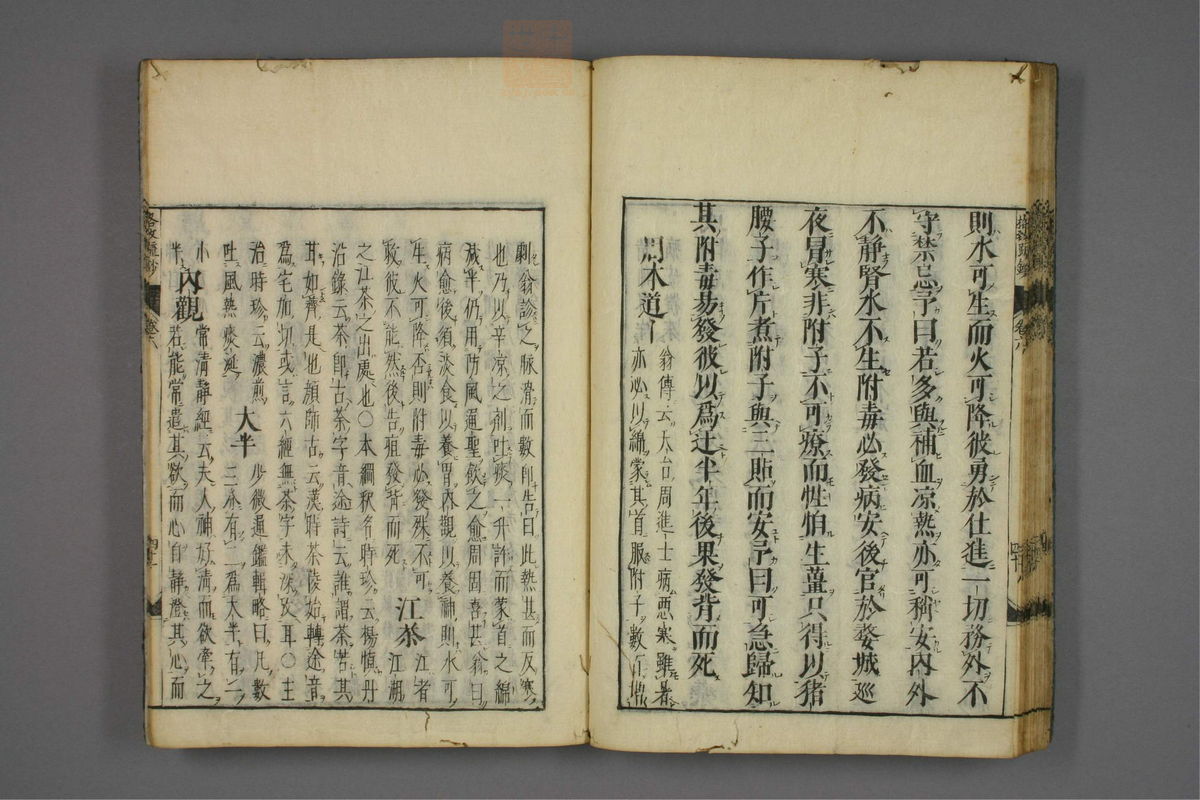 則水可生而火可降彼勇於仕進一切務外不
守禁忌予曰若多與補血凉熱亦可稍安内外
不静腎水不生附毒必發病安後官於婺城巡
夜冒寒非附子不可療而性怕生薑只得以猪
腰子作片煮附子與三貼而安予曰可急歸知
其附毒易發彼以爲迂半年後果發背而死
周木道
翁傳云天台周進士病悪寒雖暑
亦必以綿蒙其首服附子數百増
劇翁診之脉滑而數即告曰此熱甚而反寒
也乃以辛凉之剤吐痰一升許而蒙首之綿
減半仍用防風通聖飲之愈周固喜甚翁曰
病愈後須淡食以養胃内觀以養神則水可
生火可降否則附毒必發殊不可
救彼不能然後告疽發背而死
江茶
江者
江湖
之江茶之出處也○本綱釈名時珍云楊慎丹
沿錄云茶即古茶字音途詩云誰謂茶苦其
甘如薺是也顔師古云漢時茶陵始轉途音
爲宅加切或言六經無茶字未深攷耳○主
治時珍云濃煎
吐風熱痰涎
大半
少微通鑑輯略曰凡數
三分有二爲太半有一
小
半
内觀
常清静經云夫人神好清而欲牽之
若能常遣其欲而心自静澄其心而